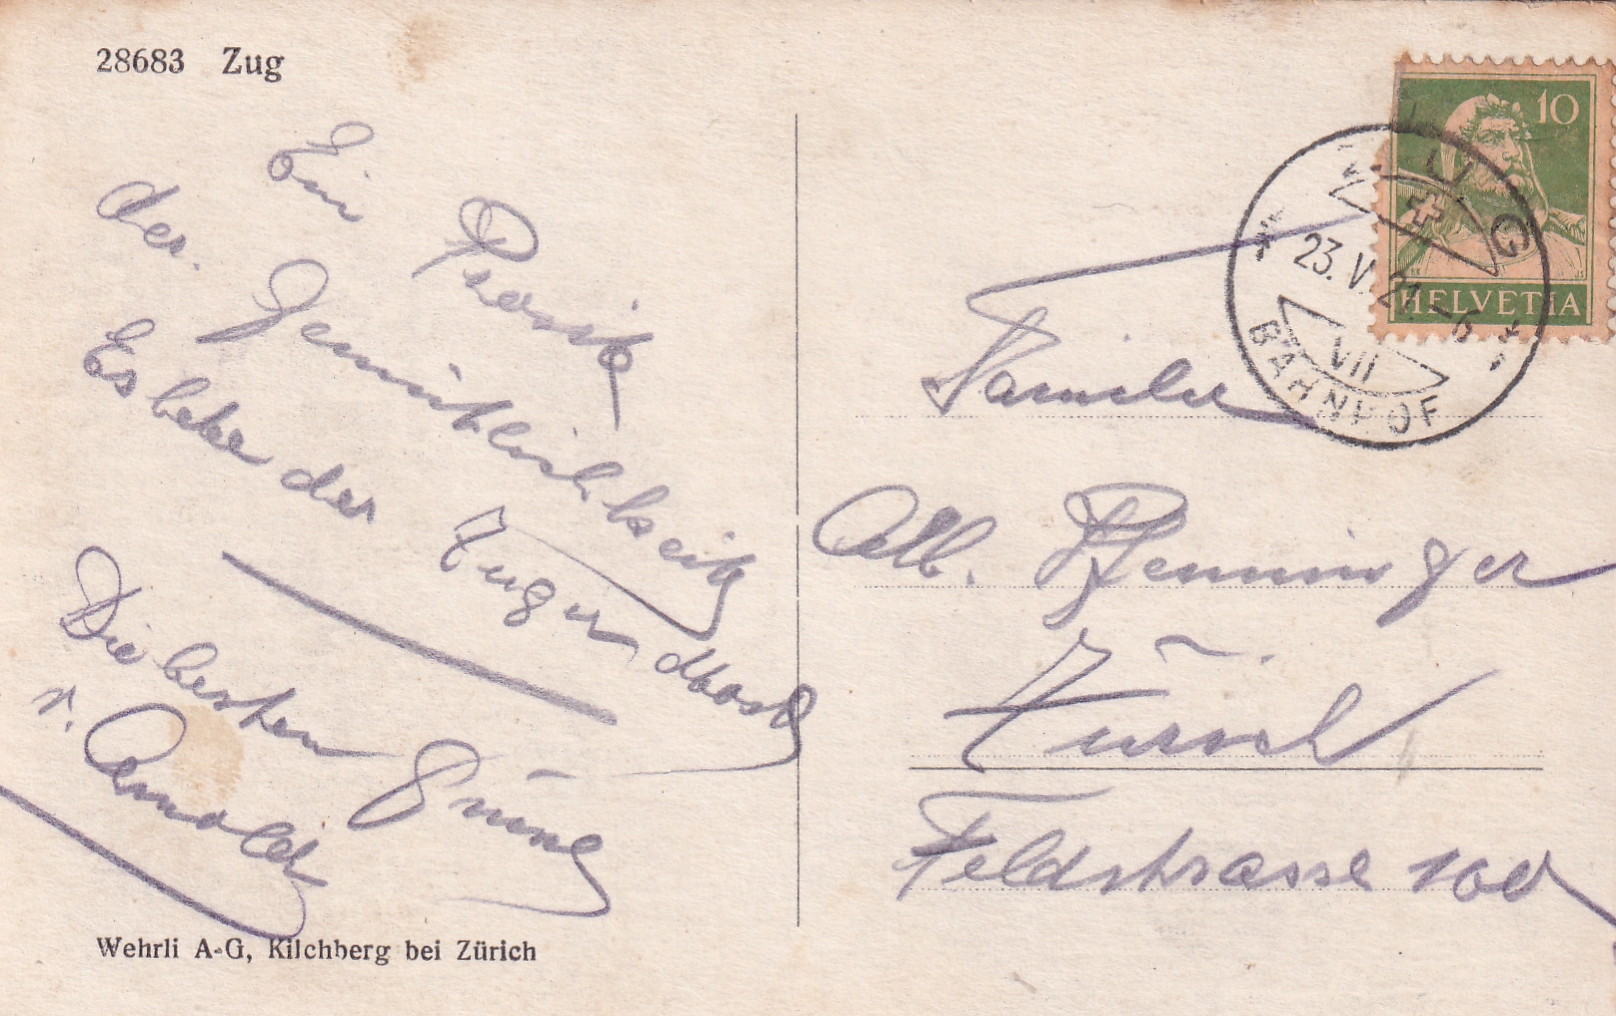 28683 Zug
Ein Prosit
der. Gemütlichkeit
Es lebe der Zuger Most
Die besten Grüsse
v. Arnold
Wehrli A-G, Kilchberg bei Zürich
10
HELVETIA
ZUG
23.V.21.-6
VII
BAHNHOF
Familie
Alb. Pfenninger
Zürich
Feldstrasse